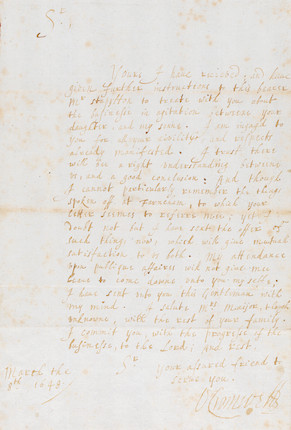 Sr.
Yours I have received, and have
given further instructions to this bearer
Mr Stapylton to treate with you about
the businesse in agitation betweene your
daughter and my sonn. I am ingaged to
you for all your civilitys and respects
already manifested. I trust there
will bee a right understandinge betweene
us, and a good conclusion: And though
I cannot particularly remember the things
spoken off at Farneham, to which your
letter seemes to referre mee; yet I
doubt not but I have sent the offer off
such things, now, which will give mutual
satisfaction to us both. My attendance
upon publique affaires will not give mee
leave to come downe unto you my selfe;
I have sent unto you this Gentleman with
my mind. I salute Mrs Maijor, though
unknowne, with the rest of your family.
I commit you with the progresse of the
businesse, to the Lord; and rest
Sr,
Your assured friend to
serve you.
March the
8th 1648.
OCromwell